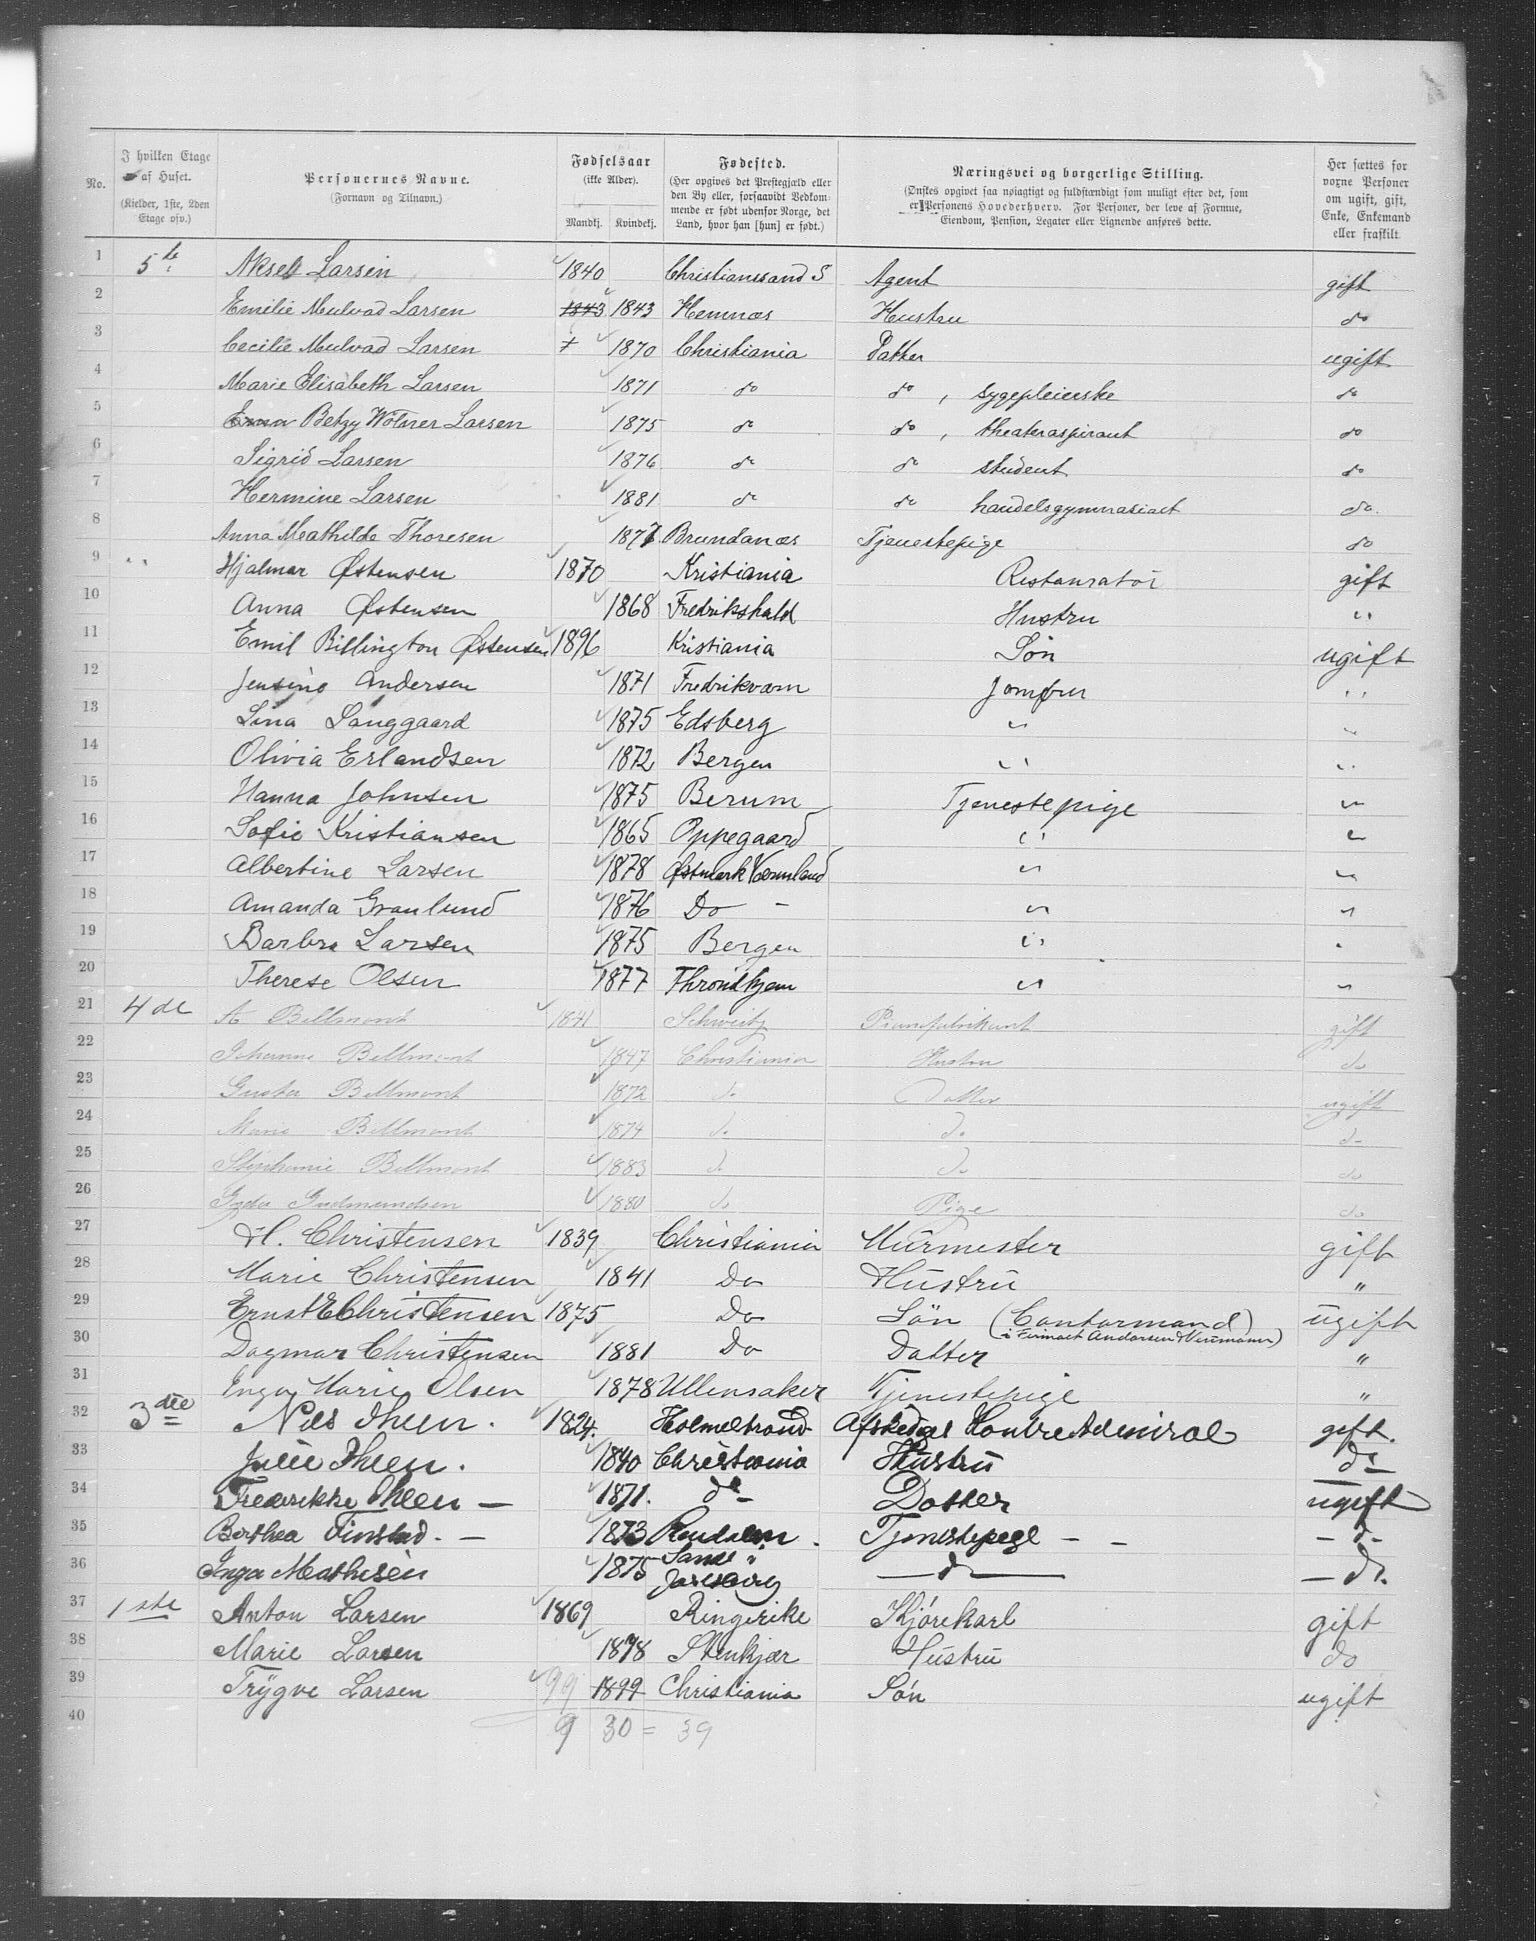 No.
I hvilken Etage af Huset.
(Kjelder, 1ste, 2den Etage osv.)
Personernes Navne.
(Fornavn og Tilnavn.)
Fødselsaar
(ikke Alder).
Mandkj. Kvindekj.
Fødested.
(Her opgives det Prestegjæld eller den By eller, forsaavidt Vedkommende er født udenfor Norge, det Land, hvor han [hun] er født.)
Næringsvei og borgerlige Stilling.
(Ønskes opgivet saa nøiagtigt og fuldstændigt som muligt efter det, som er Personens Hovederhverv. For Personer, der leve af Formue, Eiendom, Pension, Legater eller Lignende anføres dette.
Her sættes for vorne Personer om ugift, gift, Enke, Enkemand eller fraskilt.
1 5te Aksel Larsen 1840 Christianssand S Agent gift
2 Emilie Mulvad Larsen 1843 1843 Hemnæs Hustru do
3 Cecilie Mulvad Larsen 1870 Christiania Datter ugift
4 Marie Elisabeth Larsen 1871 do do, sygepleierske do
5 Emma Betzy Wölner Larsen 1875 do do, theateraspirant do
6 Sigrid Larsen 1876 do do student do
7 Hermine Larsen 1881 do do handelsgymnasiast do.
8 Anna Mathilde Thoresen 1877 Brundanæs Tjenestepige do
9 " Hjalmar Østensen 1870 Kristiania Restauratør gift
10 Anna Østensen 1868 Fredrikshald Hustru "
11 Emil Billington Østensen 1896 Kristiania Søn ugift
12 Jensine Andersen 1871 Fredriksværn Jomfru "
13 Lina Langgaard 1875 Edsberg " "
14 Olivia Erlandsen 1872 Bergen " "
15 Hanna Johnsen 1875 Berum Tjenestepige "
16 Sofie Kristiansen 1865 Oppegaard " "
17 Albertine Larsen 1878 Østmark Vermland " "
18 Amanda Granlund 1876 Do - " "
19 Barbra Larsen 1875 Bergen " "
20 Therese Olsen 1877 Throndhjem " "
21 4de A Bellmont 1841 Schweitz Pianofabrikant gift
22 Johanne Bellmont 1847 Christiania Hustru do
23 Gusta Bellmont 1872 do Datter ugift
24 Marie Bellmont 1874 do do do
25 Stephanie Bellmont 1883 do do do
26 Gyda Gudmundsen 1880 do Pige do
27 H. Christensen 1839 Christiania Murmester gift
28 Marie Christensen 1841 Do Hustru "
29 Ernst E Christensen 1875 Do Søn (Contormand ugift
i Firmaet Andersen &
30 Dagmar Christensen 1881 Do Datter "
31 Inga Marie Olsen 1878 Ullensaker Tjenestepige "
32 3die Nils Ihlen. 1824. Holmestrand Afskediget Kontre Admiral gift.
33 Julie Ihlen. 1840 Christiania Hustru do
34 Frederikke Ihlen - 1871. do - Datter ugift
35 Berthea Finstad. - 1873 Rendalen. Tjenestepige - - - do -
36 Inga Mathisen 1875 Sande i Jarlsberg - do - - do.
37 1ste Anton Larsen 1869 Ringerike Kjørekarl gift
38 Marie Larsen 1878 Stenkjær Hustru do
39 Trygve Larsen 99 1899 Christiania Søn ugift
40 9 30 = 39